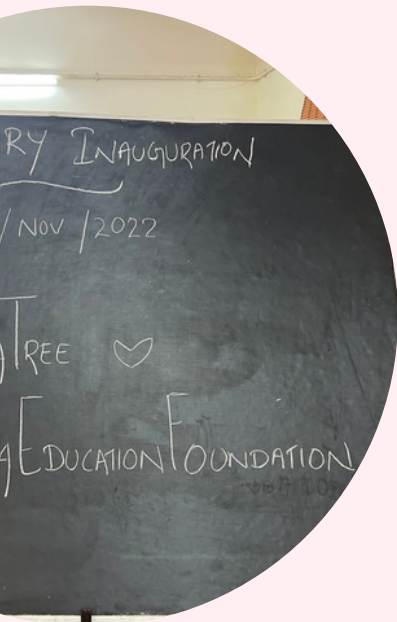 RY INAUGURATION
/ NOV / 2022
TREE ♡
A EDUCATION FOUNDATION